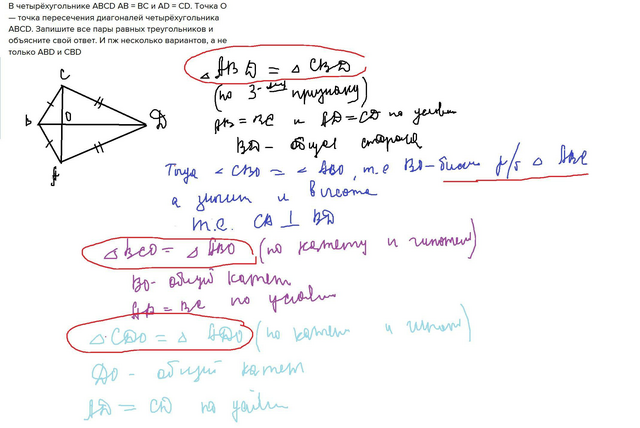 В четырёхугольнике ABCD AB = BC и AD = CD. Точка O
— точка пересечения диагоналей четырёхугольника
ABCD. Запишите все пары равных треугольников и
объясните свой ответ. И пж несколько вариантов, а не
только ABD и CBD
△ABD = △CBD
(по 3-му признаку)
AB = BC и AD = CD по условию
BD - общая сторона
C
B O D
A
Тогда ∠CBO = ∠ABO, т.е BO - бисс р/б △ABC
а значит и высота
т.е. CA ⊥ BD
△BCO = △ABO (по катету и гипотен)
BO - общий катет
AB = BC по условию
△CDO = △ADO (по катет и гипот)
DO - общий катет
AD = CD по услови